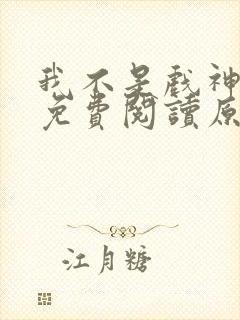 我不是戲神
免費閱讀原
江月糖